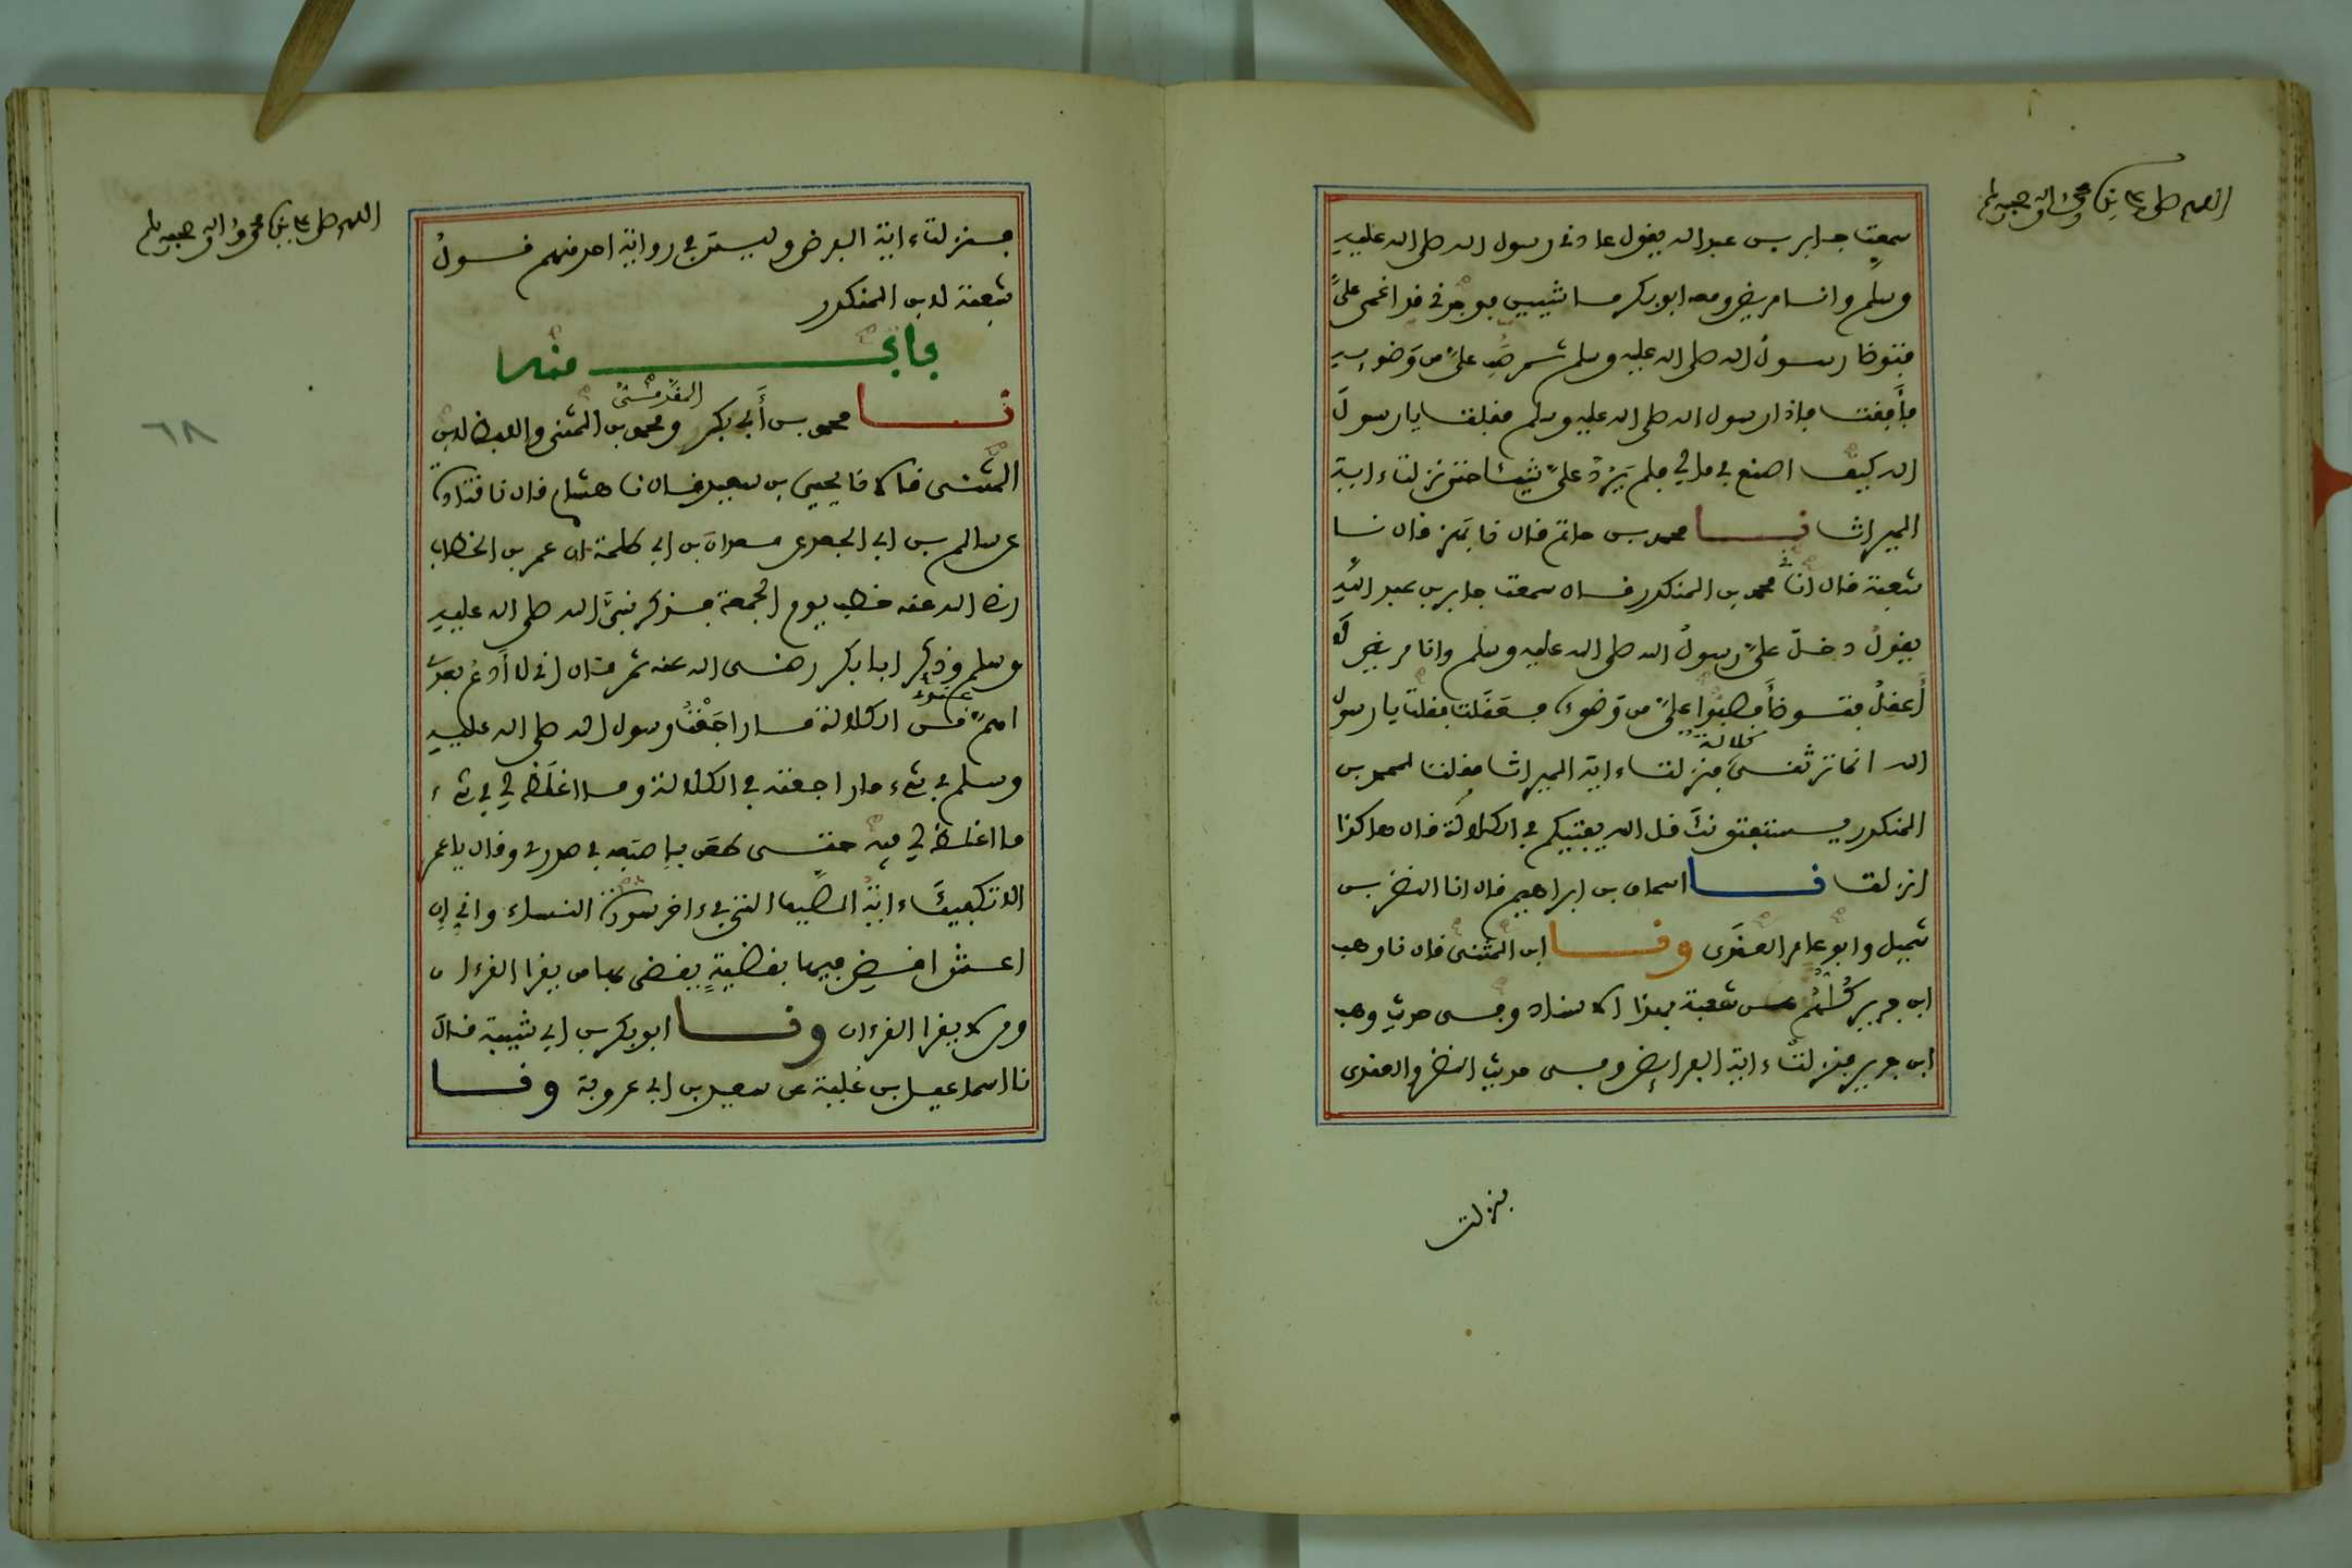 اللهم صل على نبينا محمد وآله وصحبه وسلم
سمعت جابر بن عبد الله يقول عادني رسول الله صلى الله عليه
وسلم وانا مريض ومعه ابو بكر ماشيين فوجدني قد اغمي علي
فتوضا رسول الله صلى الله عليه وسلم ثم صب علي من وضوءه
فأفقت فاذا رسول الله صلى الله عليه وسلم فقلت يا رسول
الله كيف اصنع في مالي فلم يرد علي شيئا حتى نزلت ءاية
الميراث نا محمد بن حاتم قال نا بهز قال نا
شعبة قال انا محمد بن المنكدر قال سمعت جابر بن عبد الله
يقول دخل علي رسول الله صلى الله عليه وسلم وانا مريض لا
أعقل فتوضأ فصبوا علي من وضوءه فعقلت فقلت يا رسول
الله انما ترثني كلالة فنزلت ءاية الميراث فقلت لمحمد بن
المنكدر يستفتونك قل الله يفتيكم في الكلالة قال هاكذا
انزلت نا اسحاق بن ابراهيم قال انا النضر بن
شميل وابو عامر العقدي ونا ابن المثنى قال نا وهب
ابن جرير كلهم عن شعبة بهذا الاسناد وفي حديث وهب
ابن جرير فنزلت ءاية الفرائض وفي حديث النضر والعقدي
فنزلت
اللهم صل على نبينا محمد وآله وصحبه وسلم
٦٨
فنزلت ءاية الفرض وليس في رواية احد منهم قول
شعبة لابن المنكدر
باب منه
نا محمد بن أبي بكر المقدمي ومحمد بن المثنى واللفظ لابن
المثنى قالا نا يحيى بن سعيد قال نا هشام قال نا قتادة
عن سالم بن ابي الجعد عن معدان بن ابي طلحة ان عمر بن الخطاب
رضي الله عنه خطب يوم الجمعة فذكر نبي الله صلى الله عليه
وسلم وذكر ابا بكر رضي الله عنه ثم قال اني لا أدع بعدي
اهم عندي من الكلالة ما راجعت رسول الله صلى الله عليه
وسلم في شيء ما راجعته في الكلالة وما اغلظ لي في شيء
ما اغلظ لي فيه حتى طعن بإصبعه في صدري وقال يا عمر
الا تكفيك ءاية الصيف التي في ءاخر سورة النساء واني إن
اعش اقض فيها بقضية يقضي بها من يقرا القرءان
ومن لا يقرا القرءان ونا ابو بكر بن ابي شيبة قال
نا اسماعيل بن علية عن سعيد بن ابي عروبة ونا